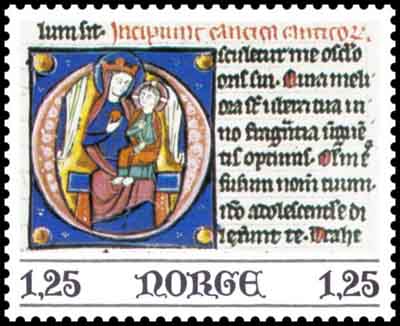 lum sit. Incipiunt cantica canticor.
sculetur me osclo
oris sui. Quia meli
ora st ubera tua ui
no fragrãtia ũguẽ
tis optimis. Olm̃ ẽ
fusum nom̃ tuum.
ido adolescentle di
lexerunt te. Trahe
1,25 NORGE 1,25